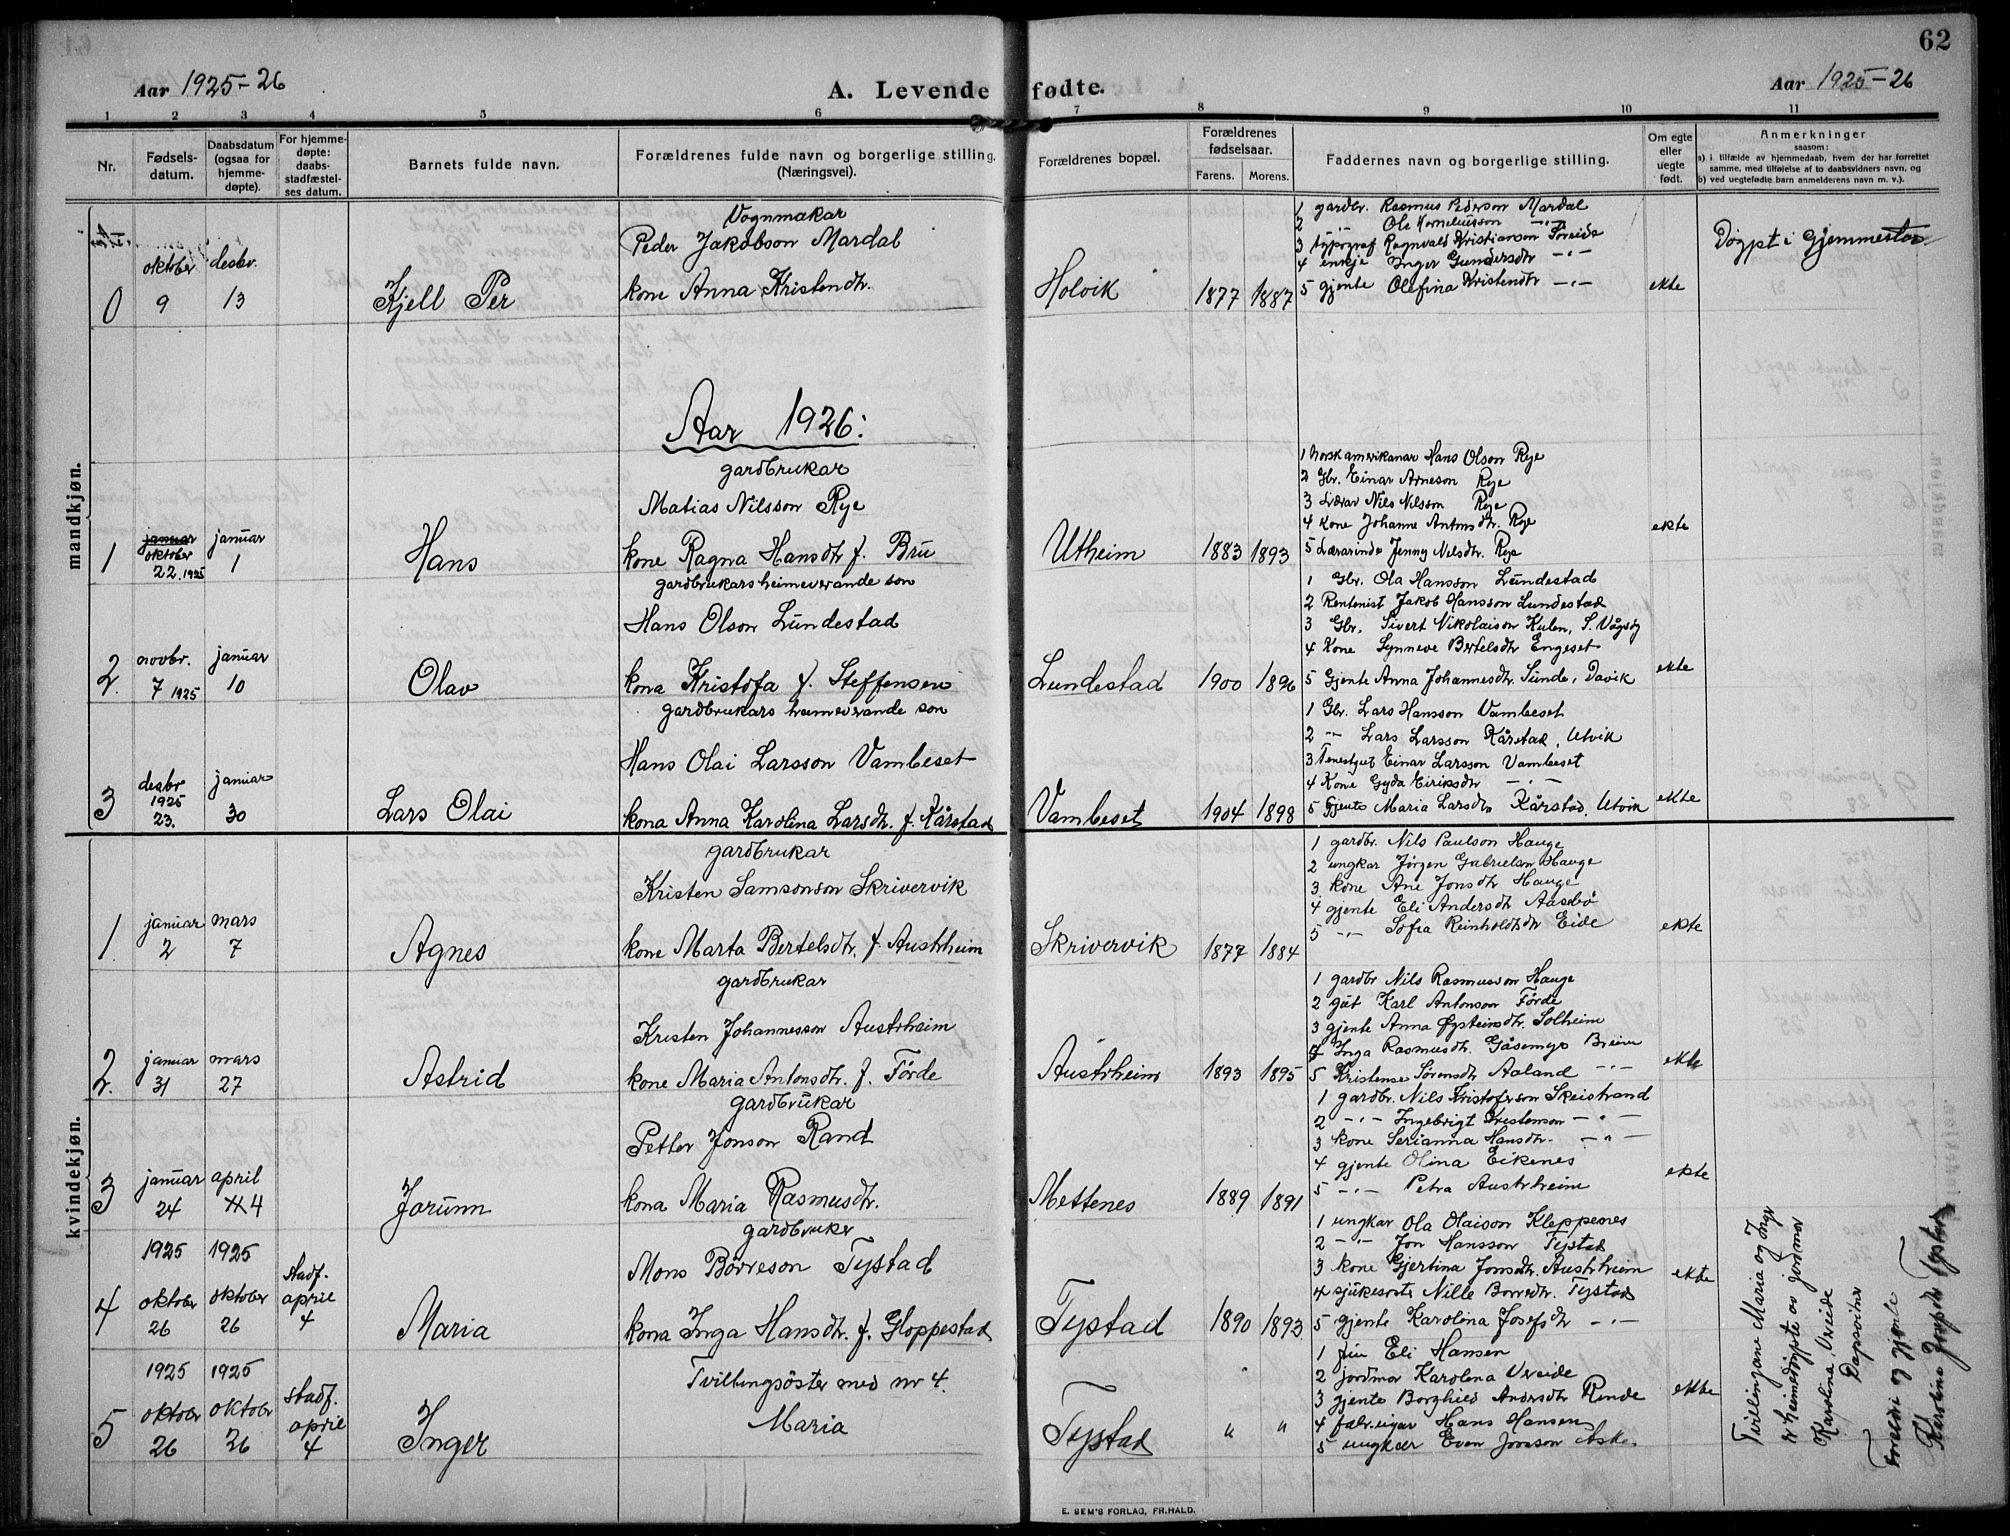 62
Aar 1925-26
A. Levende fødte.
Aar 1925-26
1 2 3 4 5 6 7 8 9 10 11
Nr.
Fødsels-
datum.
Daabsdatum
(ogsaa for
hjemme-
døpte).
For hjemme-
døpte:
daabs-
stadfæstel-
ses datum.
Barnets fulde navn.
Forældrenes fulde navn og borgerlige stilling.
(Næringsvei).
Forældrenes bopæl.
Forældrenes
fødselsaar.
Farens. Morens.
Faddernes navn og borgerlige stilling.
Om egte
eller
uegte
født.
Anmerkninger
saasom:
a) i tilfælde av hjemmedaab, hvem der har forrettet
samme, med tilføielse af to daabsvidners navn, og
b) ved uegtefødte barn anmelderens navn m. v.).
mandkjøn.
0
oktober
9
desbr.
13
Kjell Per
Vognmakar
Peder Jakobson Mardal
kone Anna Kristendtr.
Holvik
1877 1887
1 gardbr. Rasmus Pederson Mardal
2 -"- Ole Korneliusson -"-
3 typograf Ragnvald Kristianson Foreide
4 enkje Inger Gundersdtr -"-
5 gjente Olefina Kristendtr -"-
ekte
Døypt i Gjemmestad
Aar 1926:
1
januar
oktober
22. 1925
januar
1
Hans
gardbrukar
Matias Nilsson Rye
kone Ragna Hansdtr f. Bru
Utheim
1883 1893
1 Norskamerikanar Hans Olson Rye
2 Gbr. Einar Arneson Rye
3 Lærar Nils Nilsson Rye
4 Kone Johanne Antonsdtr. Rye
5 Lærarinde Jenny Nilsdtr. Rye
ekte
2.
novbr.
7 1925
januar
10
Olav
gardbrukars heimeverande son
Hans Olson Lundestad
kona Kristofa f. Steffensen
Lundestad
1900 1896
1 Gbr. Ola Hansson Lundestad
2 Rentenist Jakob Hansson Lundestad
3 Gbr. Sivert Nikolaison Kulen, S. Vågsøy
4 Kone Synneve Bertelsdtr Engeset
5 Gjente Anna Johannesdtr. Sunde, Davik
ekte
3
desbr
1925
23.
januar
30
Lars Olai
gardbrukars heimeverande son
Hans Olai Larsson Vambeset
kona Anna Karolina Larsdtr. f. Kårstad
Vambeset
1904 1898
1 Gbr. Lars Hansson Vambeset
2 -"- Lars Larsson Kårstad, Utvik
3 Tenestgut Einar Larsson Vambeset
4 Kone Gyda Eiriksdtr -"-
5 Gjente Maria Larsdtr Kårstad, Utvik
ekte
kvindekjøn.
1
januar
2
mars
7
Agnes
gardbrukar
Kristen Samsonson Skrivervik
kone Marta Bertelsdtr. f. Austrheim
Skrivervik
1877 1884
1 gardbr. Nils Paulson Hauge
2 ungkar Jørgen Gabrielson Hauge
3 kone Ane Jonsdtr Hauge
4 gjente Eli Andersdtr Aasebø
5 -"- Sofia Reinholdtsdtr Eide
ekte
2.
januar
31
mars
27
Astrid
gardbrukar
Kristen Johannesson Austrheim
kone Maria Antonsdtr. f. Förde
Austrheim
1893 1895
1 gardbr Nils Rasmusson Hauge
2 gut Karl Antonson Förde
3 gjente Anna Øysteinsdtr. Solheim
4 Inga Rasmusdtr. Gåsemyr Breim
5 Kristense Sørensdtr Aaland -"-
ekte
3
januar
24
april
4
Jorunn
gardbrukar
Petter Jonson Rand
kona Maria Rasmusdtr.
Mettenes
1889 1891
1 gardbr. Nils Kristoferson Skeistrand
2 -"- Ingebrigt Kristenson -"-
3 kone Serianna Hansdtr. -"-
4 gjente Olina Eikenes
5 -"- Petra Austrheim
ekte
4
1925
oktober
26
1925
oktober
26
stadf.
april
4
Maria
gardbruker
Mons Børreson Tystad
kona Inga Hansdtr. f. Gloppestad
Tystad
1890 1893
1 ungkar Ola Olaison Kleppenes
2 -"- Jon Hansson Tystad
3 kone Gjertina Jonsdtr. Austrheim
4 sjukesøste Nille Børredtr. Tystad
5 gjente Karolina Josefsdtr -"-
ekte
5
1925
oktober
26
1925
oktober
26
stadf.
april
4
Inger
Tvillingsöster med nr 4.
Maria
Tystad
" "
1 fru Eli Hansen
2 jordmor Karolina Vereide
3 gjente Borghild Andersdtr Rinde
4 fabr.eigar Hans Hansen
5 ungkar Even Jonsson Aske.
ekte
Tvillingane Maria og Inger
er heimedöypte av jordmor
Karolina Vereide
Dapsvitner
foreldre og gjente
Karolina Josefsdtr Tystad
E. SEM'S FORLAG, FR.HALD.